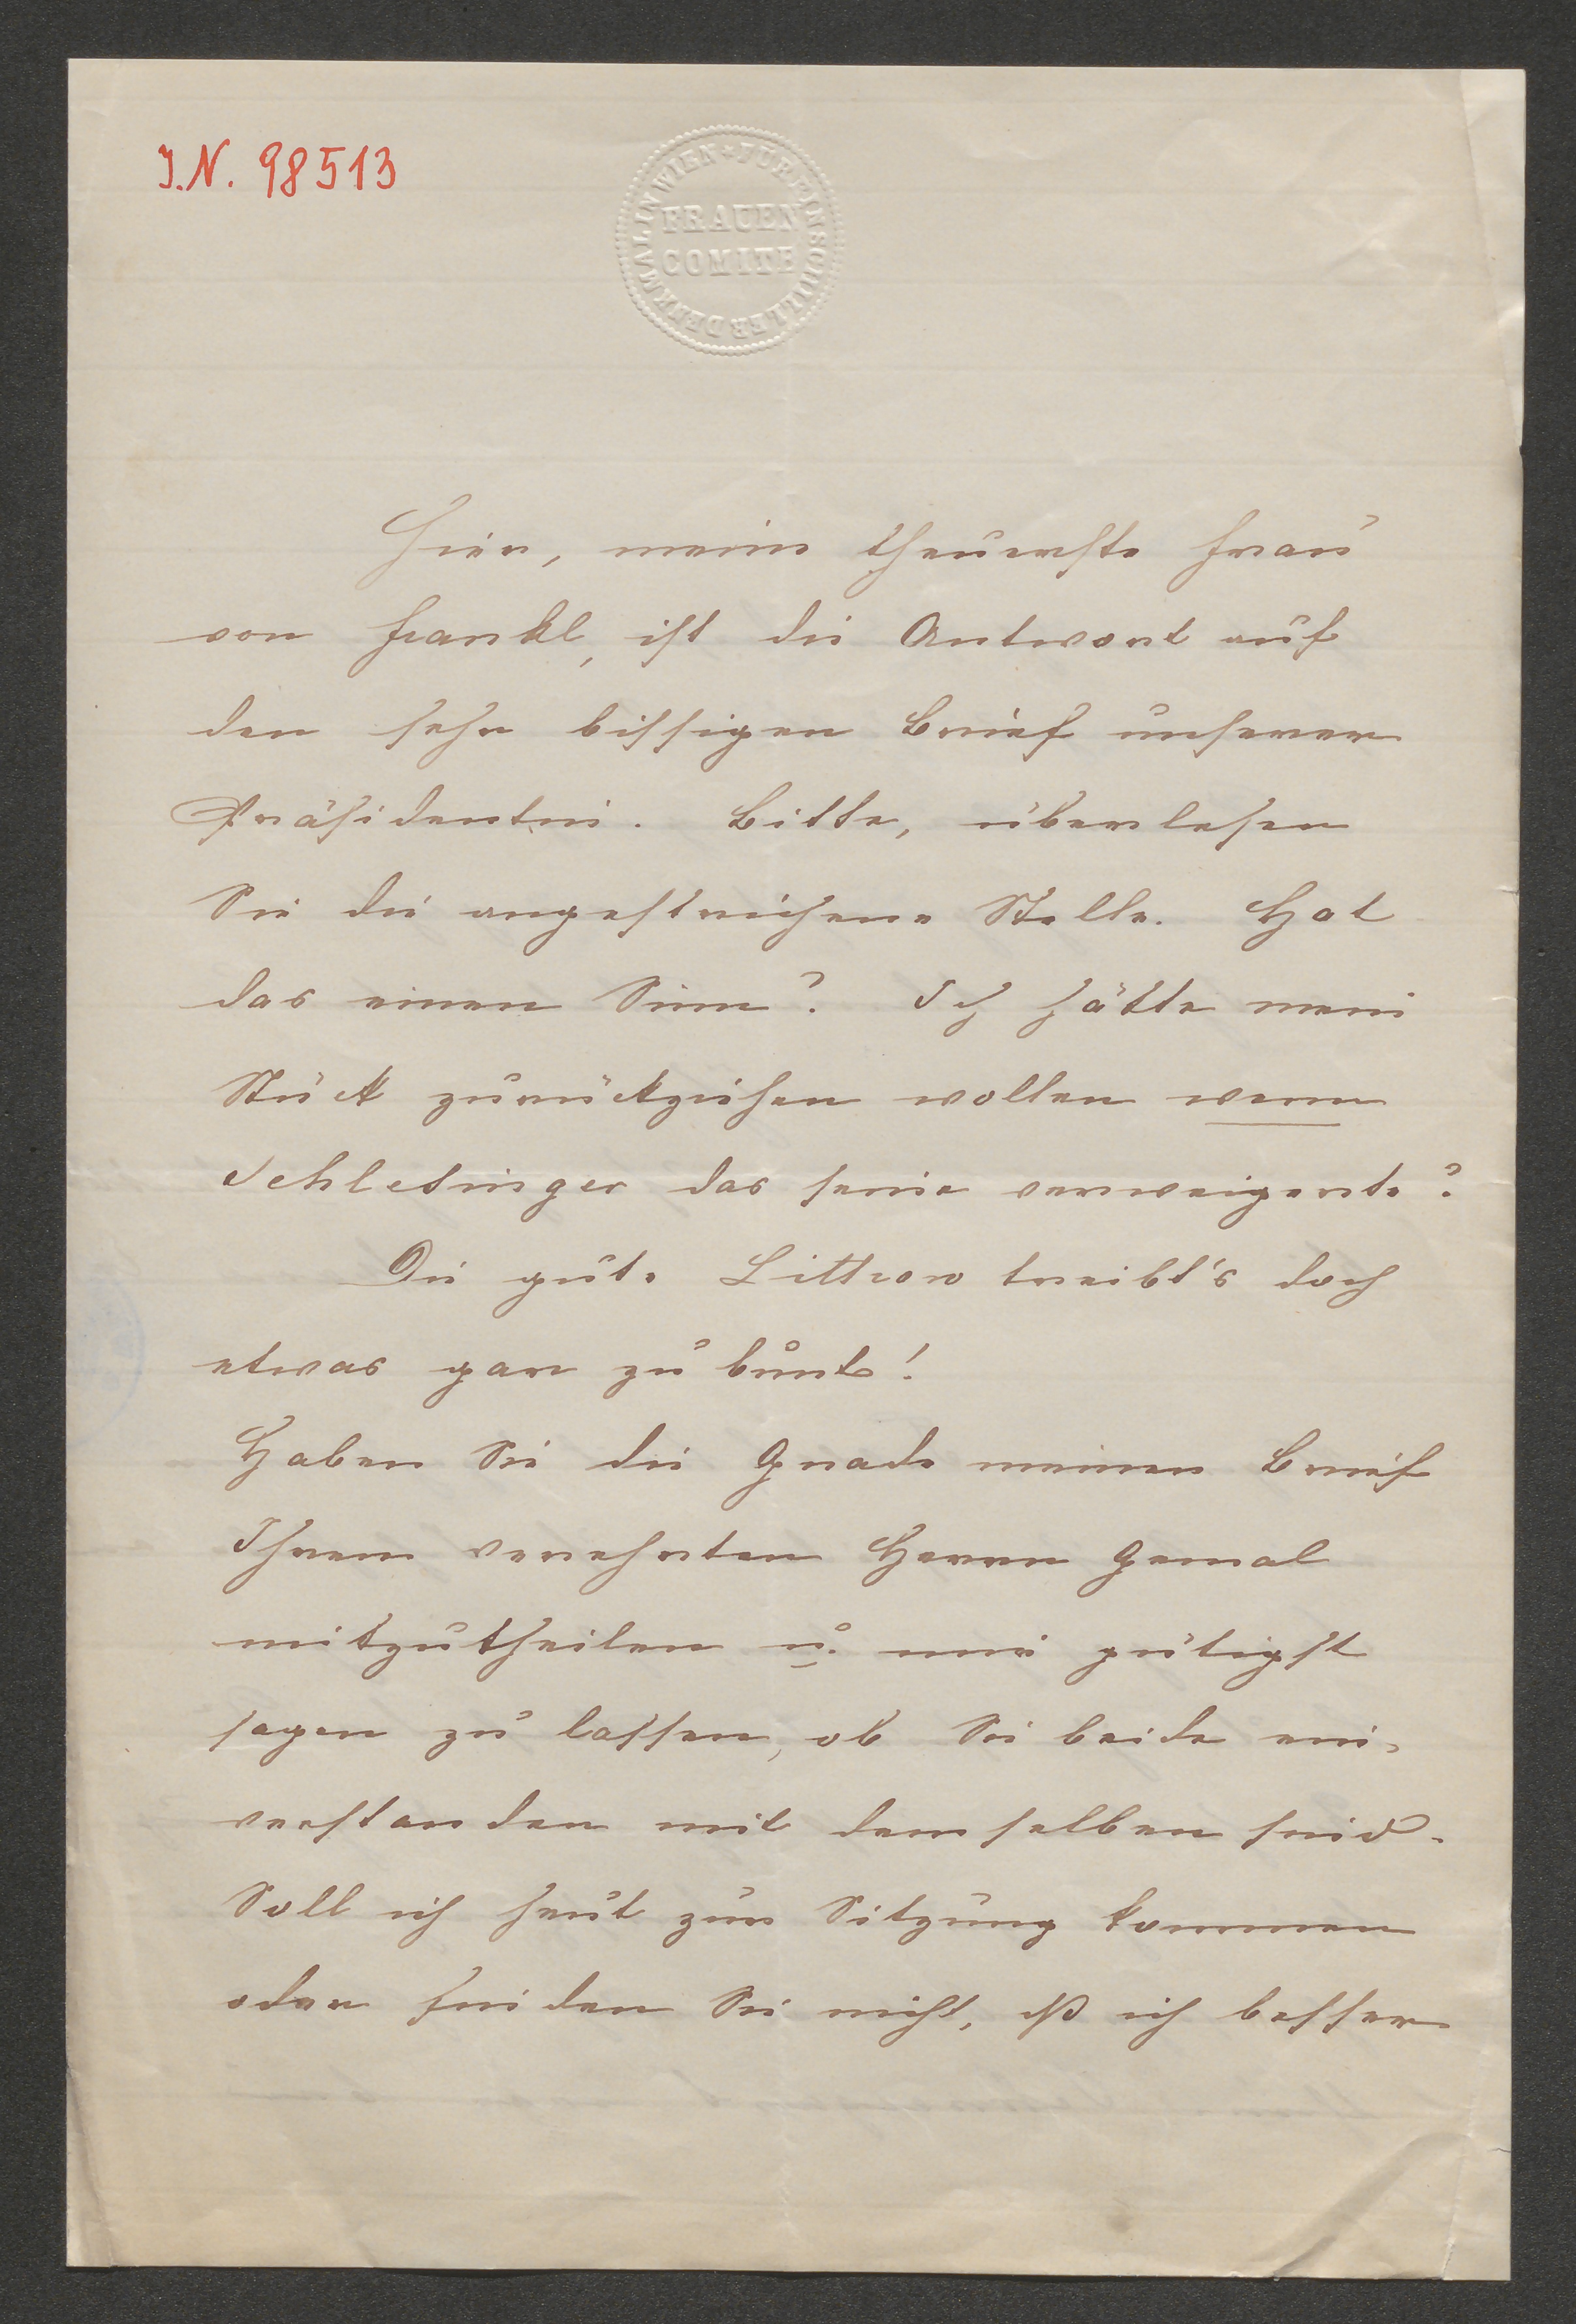 I.N. 98513
FÜR EIN SCHILLER DENKMAL IN WIEN
FRAUEN
COMITE
Hier, meine theuerste Frau
von Frankl, ist die Antwort auf
den sehr bissigen Brief unserer
Präsidentin. Bitte, überlesen
Sie die angestrichene Stelle. Hat
das einen Sinn? Ich hätte mein
Stück zurückziehen wollen wenn
Schlesinger das seine verweigerte?
Die gute Littrow treibt's doch
etwas gar zu bunt!
Haben Sie die Gnade meinen Brief
Ihrem verehrten Herrn Gemal
mitzutheilen u. mir gütigst
sagen zu lassen, ob Sie beide ein-
verstanden mit demselben sind.
Soll ich heut zur Sitzung kommen
oder finden Sie nicht, dß ich besser